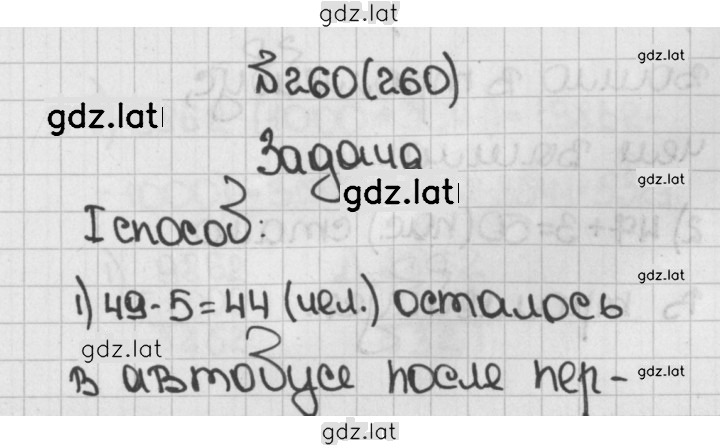 gdz.lat
№260(260)
gdz.lat
gdz.lat
Задача
gdz.lat
gdz.lat
I способ:
1) 49-5=44 (чел.) осталось
gdz.lat
gdz.lat
в автобусе после пер-
gdz.lat
gdz.lat